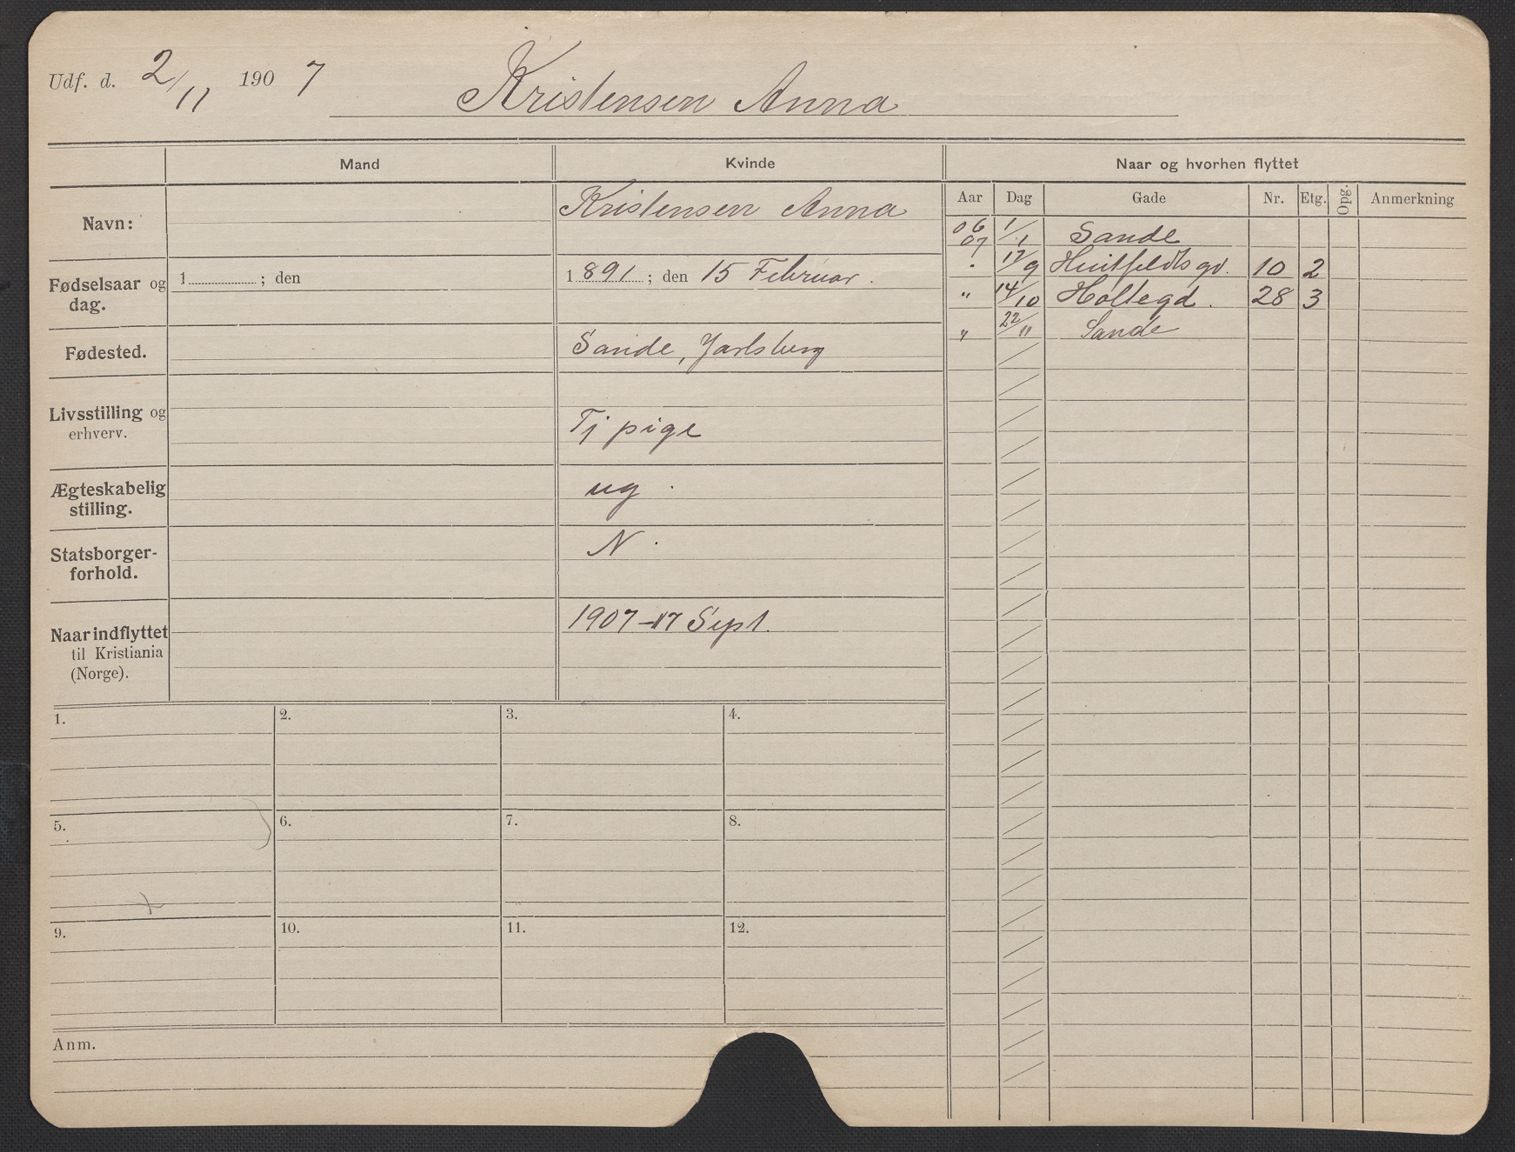 Udf. d. 2/11 1907 Kristensen Anna
Mand Kvinde Naar og hvorhen flyttet
Aar Dag Gade Nr. Etg. Opg. Anmerkning
Navn: Kristensen Anna
Fødselsaar og dag. 1 ; den 1891 ; den 15 Februar.
Fødested. Sande, Jarlsberg
Livsstilling og erhverv. Tj pige
Ægteskabelig stilling. ug.
Statsborger-
forhold. N.
Naar indflyttet 1907 - 17 Sept.
til Kristiania
(Norge).
06 07 1/1 Sande
" 17/9 Huitfeldts gd. 10 2
" 14/10 Holtegd. 28 3
" 22/" Sande
1. 2. 3. 4.
5. 6. 7. 8.
9. 10. 11. 12.
Anm.